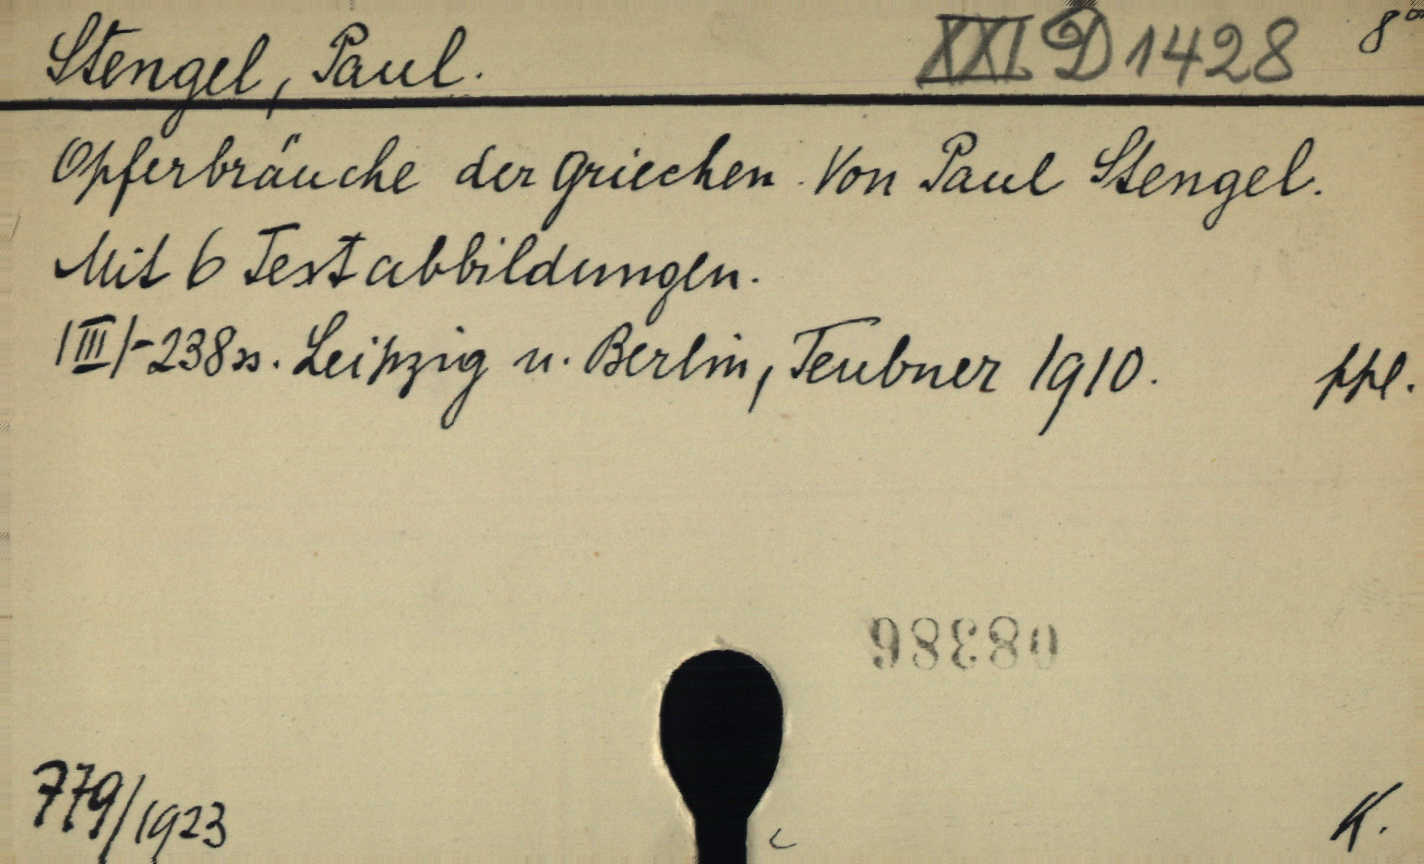 Stengel, Paul. XXI D 1428 8°
Opferbräuche der Griechen. Von Paul Stengel.
Mit 6 Textabbildungen.
|III|-238 ss. Leipzig u. Berlin, Teubner 1910. ppl.
08386
779/1923 K.